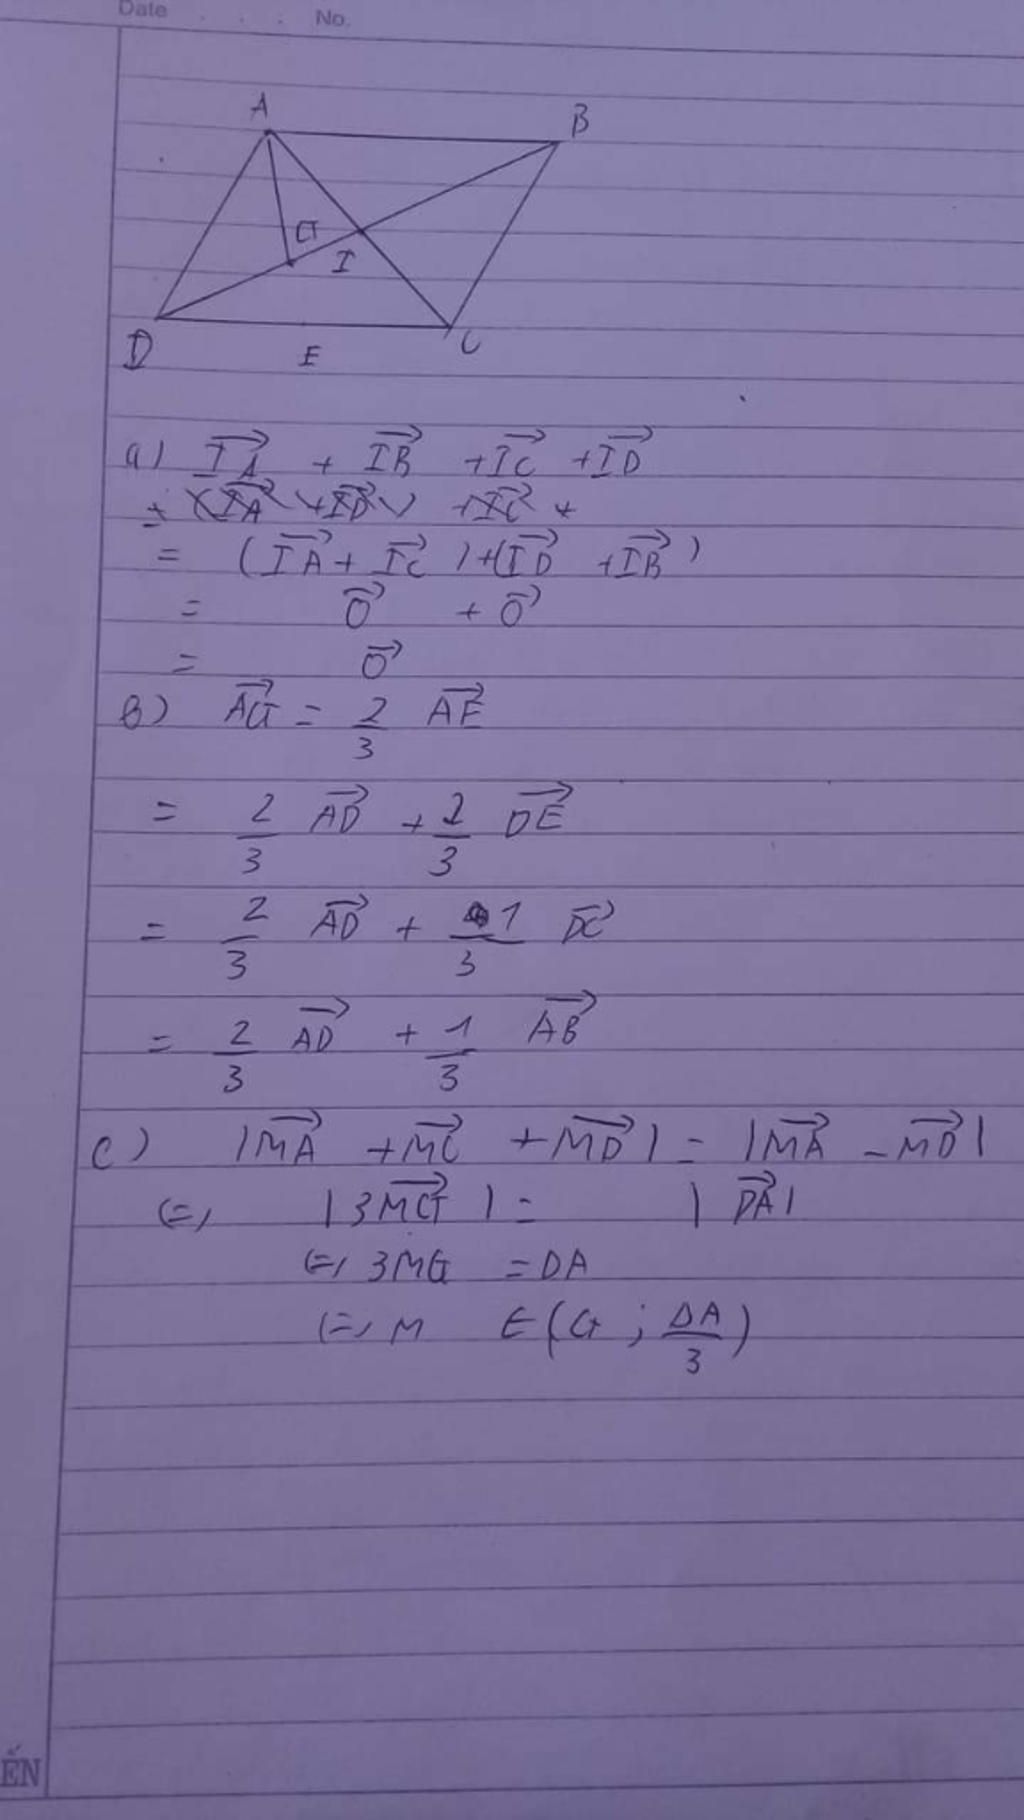 Date . . : No.
A B
G
I
D E C
a) →IA + →IB + →IC + →ID
= (→IA + →IC) + (→ID + →IB)
= →0 + →0
= →0
b) →AG = 2/3 →AE
= 2/3 →AD + 2/3 →DE
= 2/3 →AD + 1/3 →DC
= 2/3 →AD + 1/3 →AB
c) |→MA + →MC + →MD| = |→MA - →MD|
(=) |3→MG| = |→DA|
(=) 3MG = DA
(=) M ∈ (G ; DA/3)
ẾN